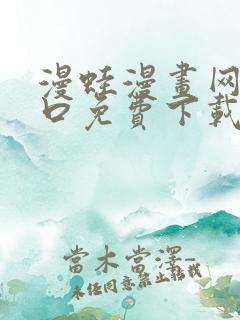 漫蛙漫畫网
口免費下載
當木當澤-
未经同意禁止转载